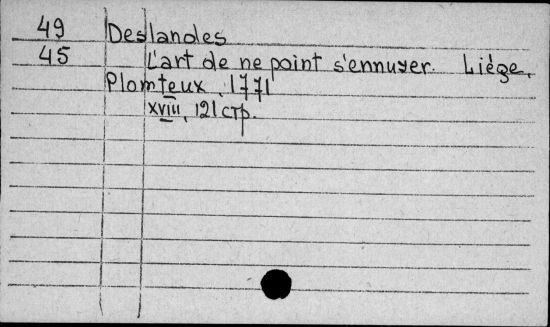 49 Deslandes
45 L'art de ne point s'ennuyer. Liége,
Plomteux, 1771
xviii, 121 стр.